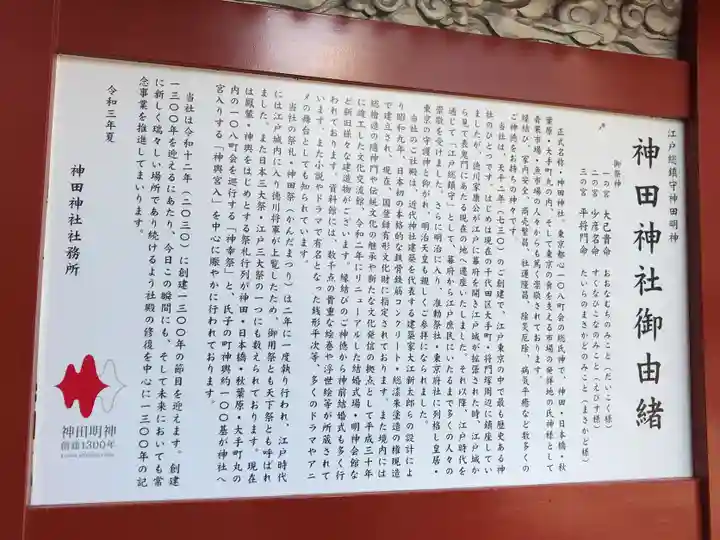 江戸総鎮守神田明神
神田神社御由緒
御祭神
一の宮 大己貴命 おおなむちのみこと(だいこく様)
二の宮 少彦名命 すくなひこなのみこと(えびす様)
三の宮 平将門命 たいらのまさかどのみこと(まさかど様)
正式名称・神田神社。東京都心一〇八町会の総氏神で、神田・日本橋・秋
葉原・大手町丸の内、そして東京の食を支える市場の発祥地の氏神様として
青果市場・魚市場の人々からも篤く崇敬されております。
縁結び、家内安全、商売繁昌、社運隆昌、除災厄除、病気平癒など数多くの
ご神徳をお持ちの神々です。
当社は、天平二年(七三〇)のご創建で、江戸東京の中で最も歴史ある神
社のひとつです。はじめは現在の千代田区大手町・将門塚周辺に鎮座してい
ましたが、徳川家康公が江戸に幕府を開き江戸城が拡張された時、江戸城か
ら見て表鬼門にあたる現在の地へ遷座いたしました。それ以降、江戸時代を
通じて「江戸総鎮守」として、幕府から江戸庶民にいたるまで多くの人々の
崇敬を受けました。さらに明治に入り、准勅祭社・東京府社に列格し皇居・
東京の守護神と仰がれ、明治天皇も親しくご参拝になられました。
当社のご社殿は、近代神社建築を代表する建築家大江新太郎らの設計によ
り昭和九年、日本初の本格的な鉄骨鉄筋コンクリート・総漆朱塗造の権現造
で建立され、現在、国登録有形文化財に指定されております。また境内には
総檜造の随神門や伝統文化の継承や新たな文化発信の拠点として平成三十年
に竣工した文化交流館、令和二年にリニューアルした結婚式場・明神会館な
ど新旧様々な建造物がございます。縁結びのご神徳から神前結婚式も多く行
われております。資料館には、数千点の貴重な絵巻や浮世絵等が所蔵されて
います。また小説やドラマで有名となった銭形平次等、多くのドラマやアニ
メの舞台としても知られています。
当社の祭礼・神田祭(かんだまつり)は二年に一度執り行われ、江戸時代
には江戸城内に入り徳川将軍が上覧したため、御用祭とも天下祭とも呼ばれ
ました。また日本三大祭・江戸三大祭の一つにも数えられております。現在
は鳳輦・神輿をはじめとする祭礼行列が神田・日本橋・秋葉原・大手町丸の
内の一〇八町会を巡行する「神幸祭」と、氏子の町神輿約一〇〇基が神社へ
宮入りする「神輿宮入」を中心に賑やかに行われております。
当社は令和十二年(二〇三〇)に創建一三〇〇年の節目を迎えます。創建
一三〇〇年を迎えるにあたり、今日この瞬間にも、そして未来においても常
に新しく瑞々しい場所であり続けるよう社殿の修復を中心に一三〇〇年の記
念事業を推進してまいります。
令和三年夏
神田神社社務所
神田明神
創建1300年